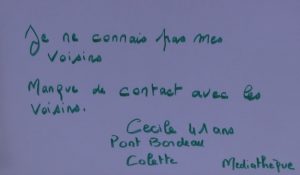 Je ne connais pas mes
voisins
Manque de contact avec les
voisins.
Cecile 41 ans
Pont Bordeau
Colette
Mediathèque